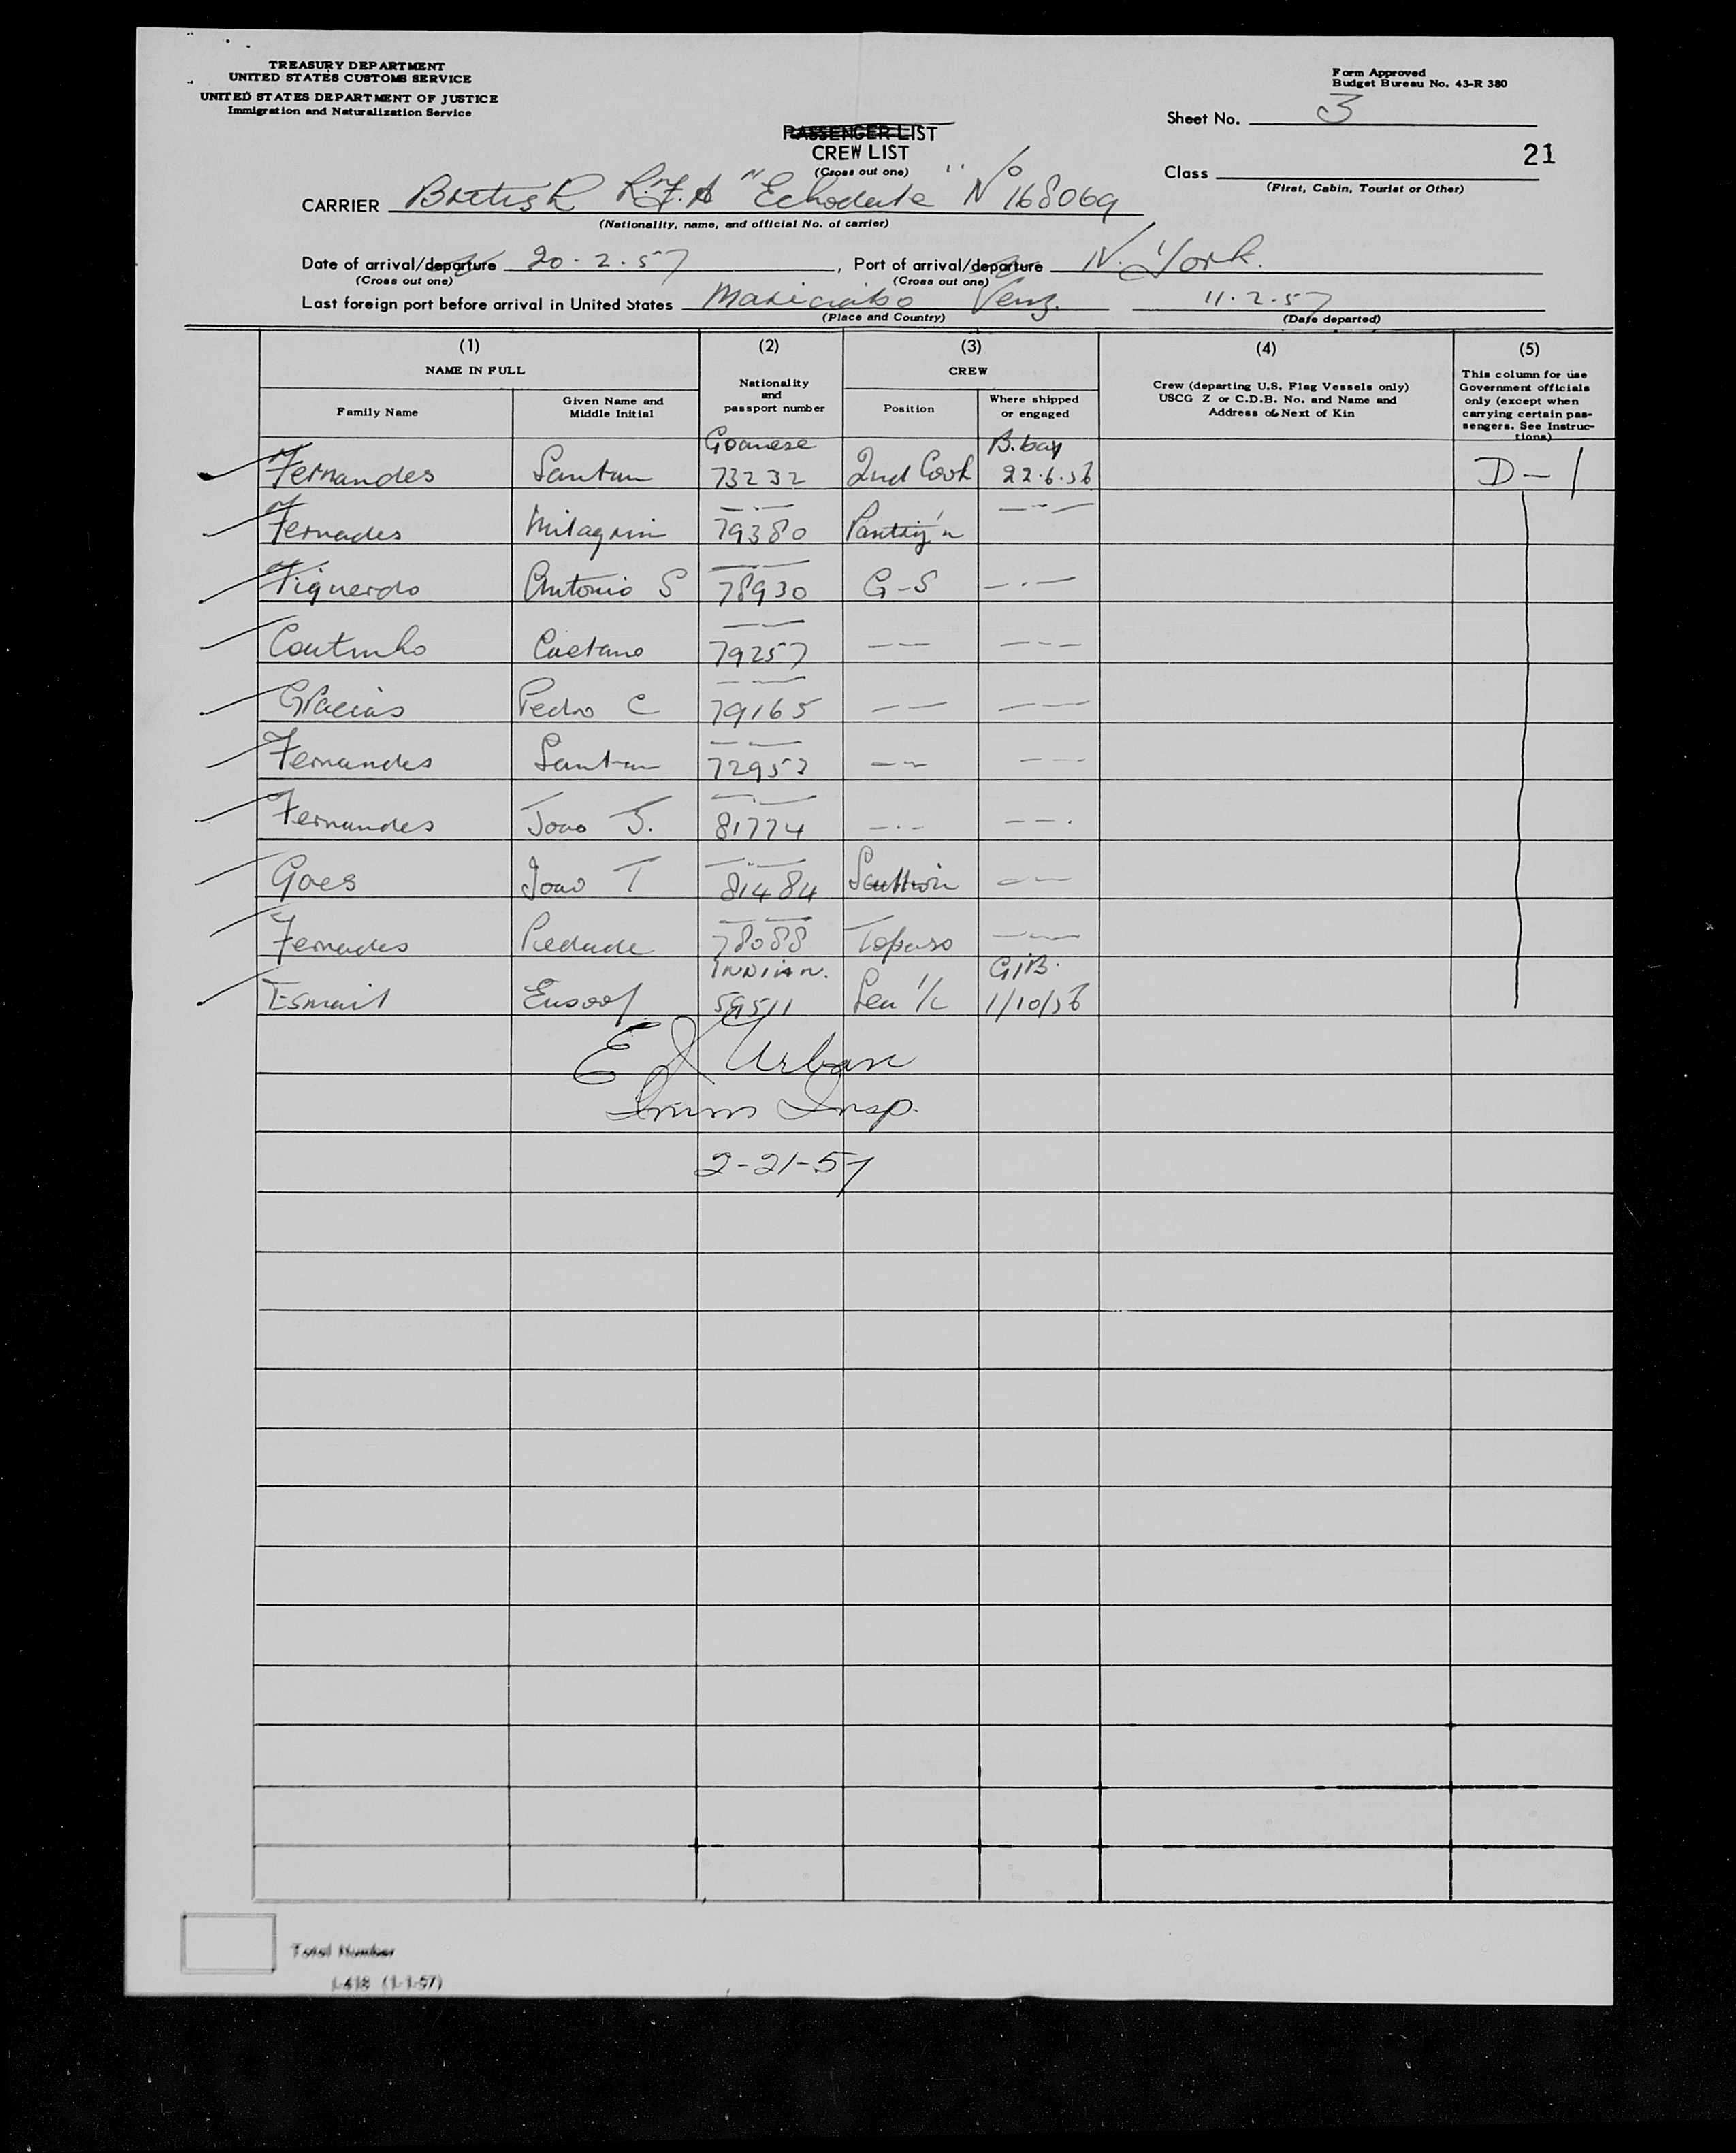 TREASURY DEPARTMENT
UNITED STATES CUSTOMS SERVICE
UNITED STATES DEPARTMENT OF JUSTICE
Immigration and Naturalization Service
Form Approved
Budget Bureau No. 43-R 380
Sheet No. 3
PASSENGER LIST
CREW LIST
(Cross out one)
21
Class
(First, Cabin, Tourist or Other)
CARRIER British R.F.A "Echodale" No 168069
(Nationality, name, and official No. of carrier)
Date of arrival/departure 20.2.57, Port of arrival/departure N. York.
(Cross out one) (Cross out one)
Last foreign port before arrival in United States Venz. 11.2.57
(Place and Country) (Date departed)
(1) (2) (3) (4) (5)
NAME IN FULL
Family Name
Given Name and
Middle Initial
Nationality
and
passport number
CREW
Position
Where shipped
or engaged
Crew (departing U.S. Flag Vessels only)
USCG Z or C.D.B. No. and Name and
Address of Next of Kin
This column for use
Government officials
only (except when
carrying certain pas-
sengers. See Instruc-
tions)
Goanese B.bay
Fernandes Santan 73232 2nd Cook 22.6.56 D-1
Fernades Milagrin 79380 — . —
Figuerdo Antonio S 78930 G-S — . —
Coutinho Caetano 79257 — — — — —
Gracias Pedro C 79165 — — — —
Fernandes Santan 72952 — — — — —
Fernandes Joao J. 81774 — . — — — .
Goes Joao T 81484 — —
Fernades Piedade 78088 Topaso — —
INDIAN. GIB.
Esmail Eusoof 59511 1/10/56
E J Urban
Imm Insp.
2-21-57
Total Number
I-418 (1-1-57)